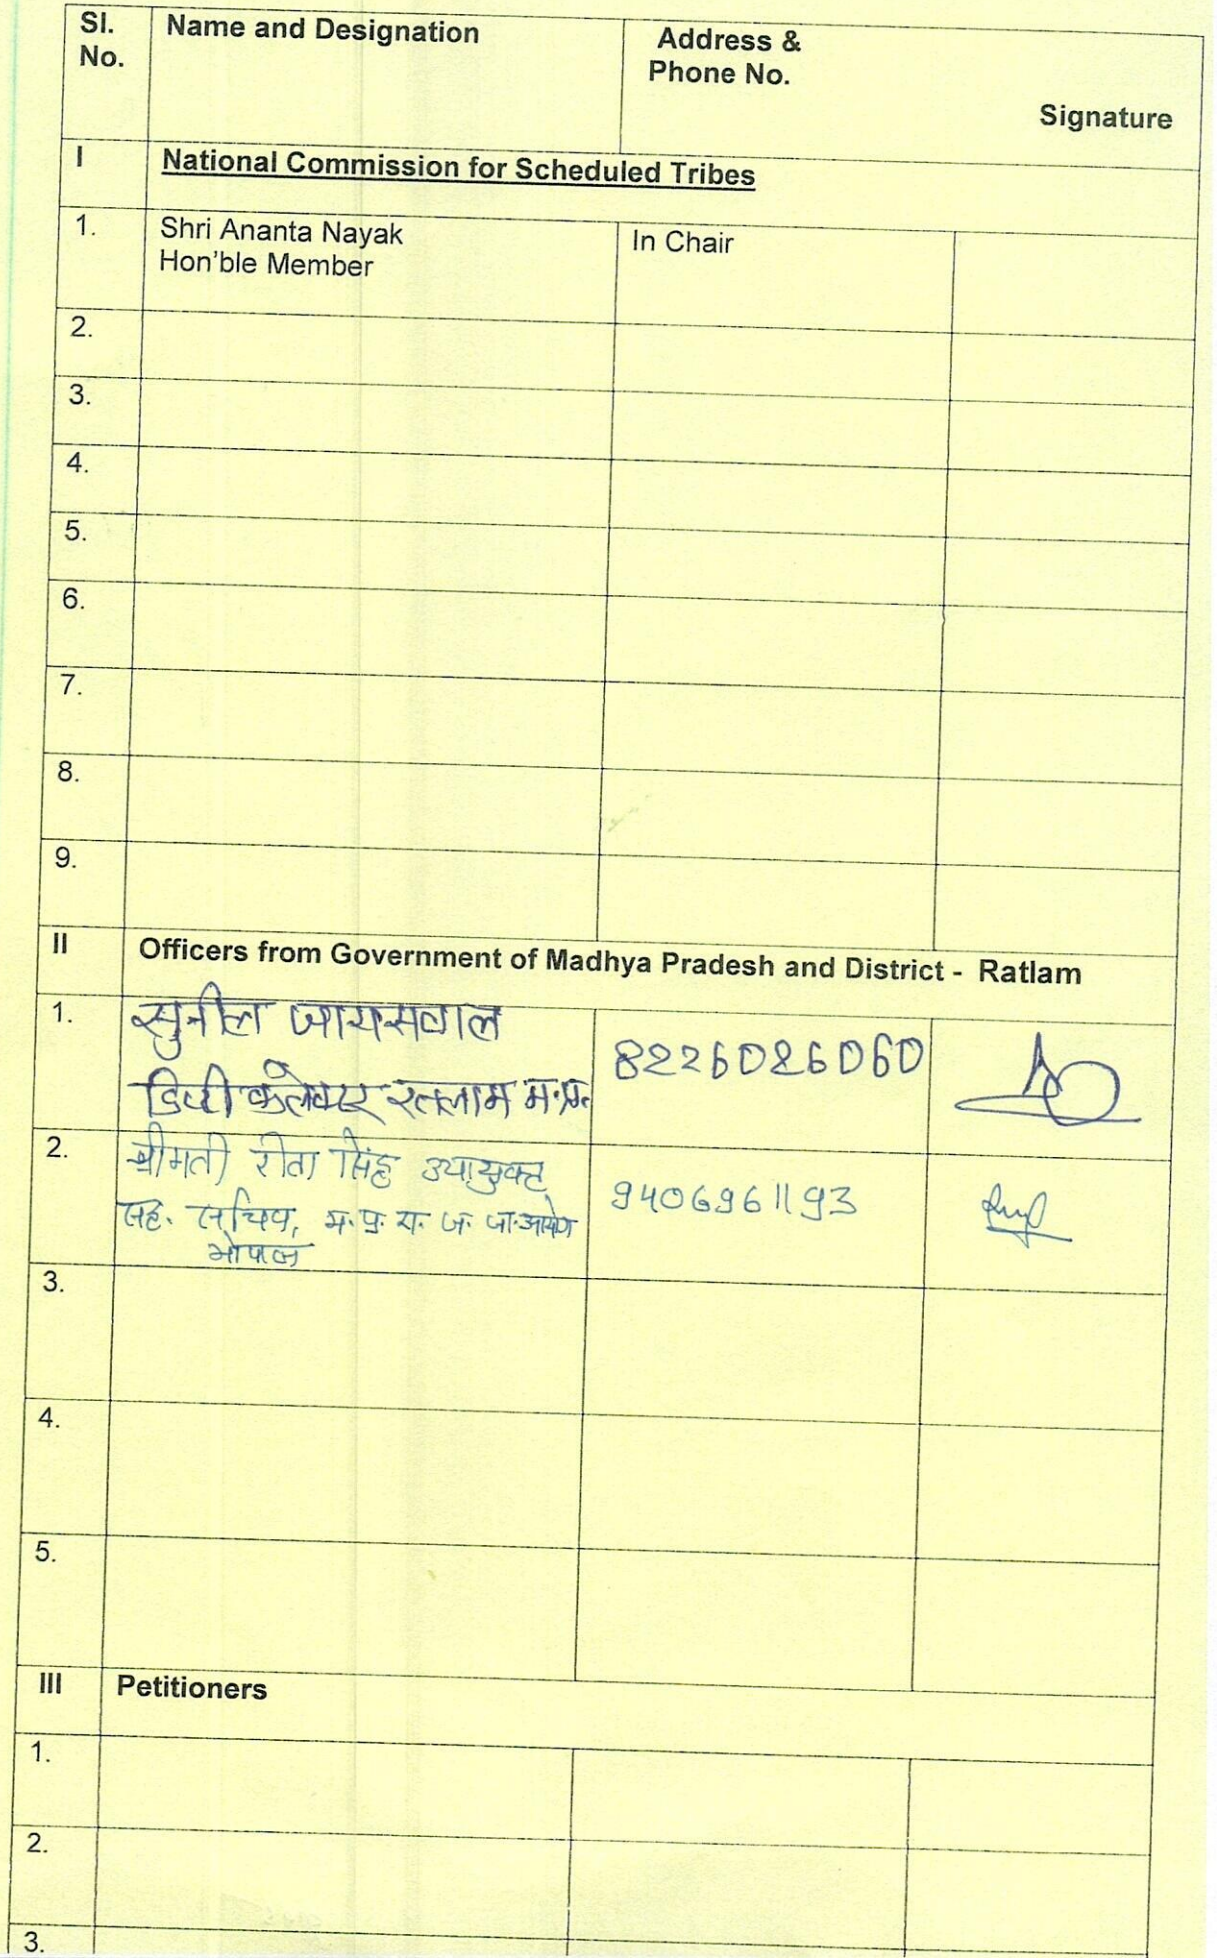 Sl. No. Name and Designation Address & Phone No. Signature
I National Commission for Scheduled Tribes
1. Shri Ananta Nayak In Chair
Hon'ble Member
2.
3.
4.
5.
6.
7.
8.
9.
II Officers from Government of Madhya Pradesh and District - Ratlam
1. सुनील जायसवाल 8226026060
डिप्टी कलेक्टर रतलाम म.प्र.
2. श्रीमती रीता सिंह उपायुक्त 9406961193
सह. सचिव, म.प्र. रा. ज. जा. आयोग
भोपाल
3.
4.
5.
III Petitioners
1.
2.
3.